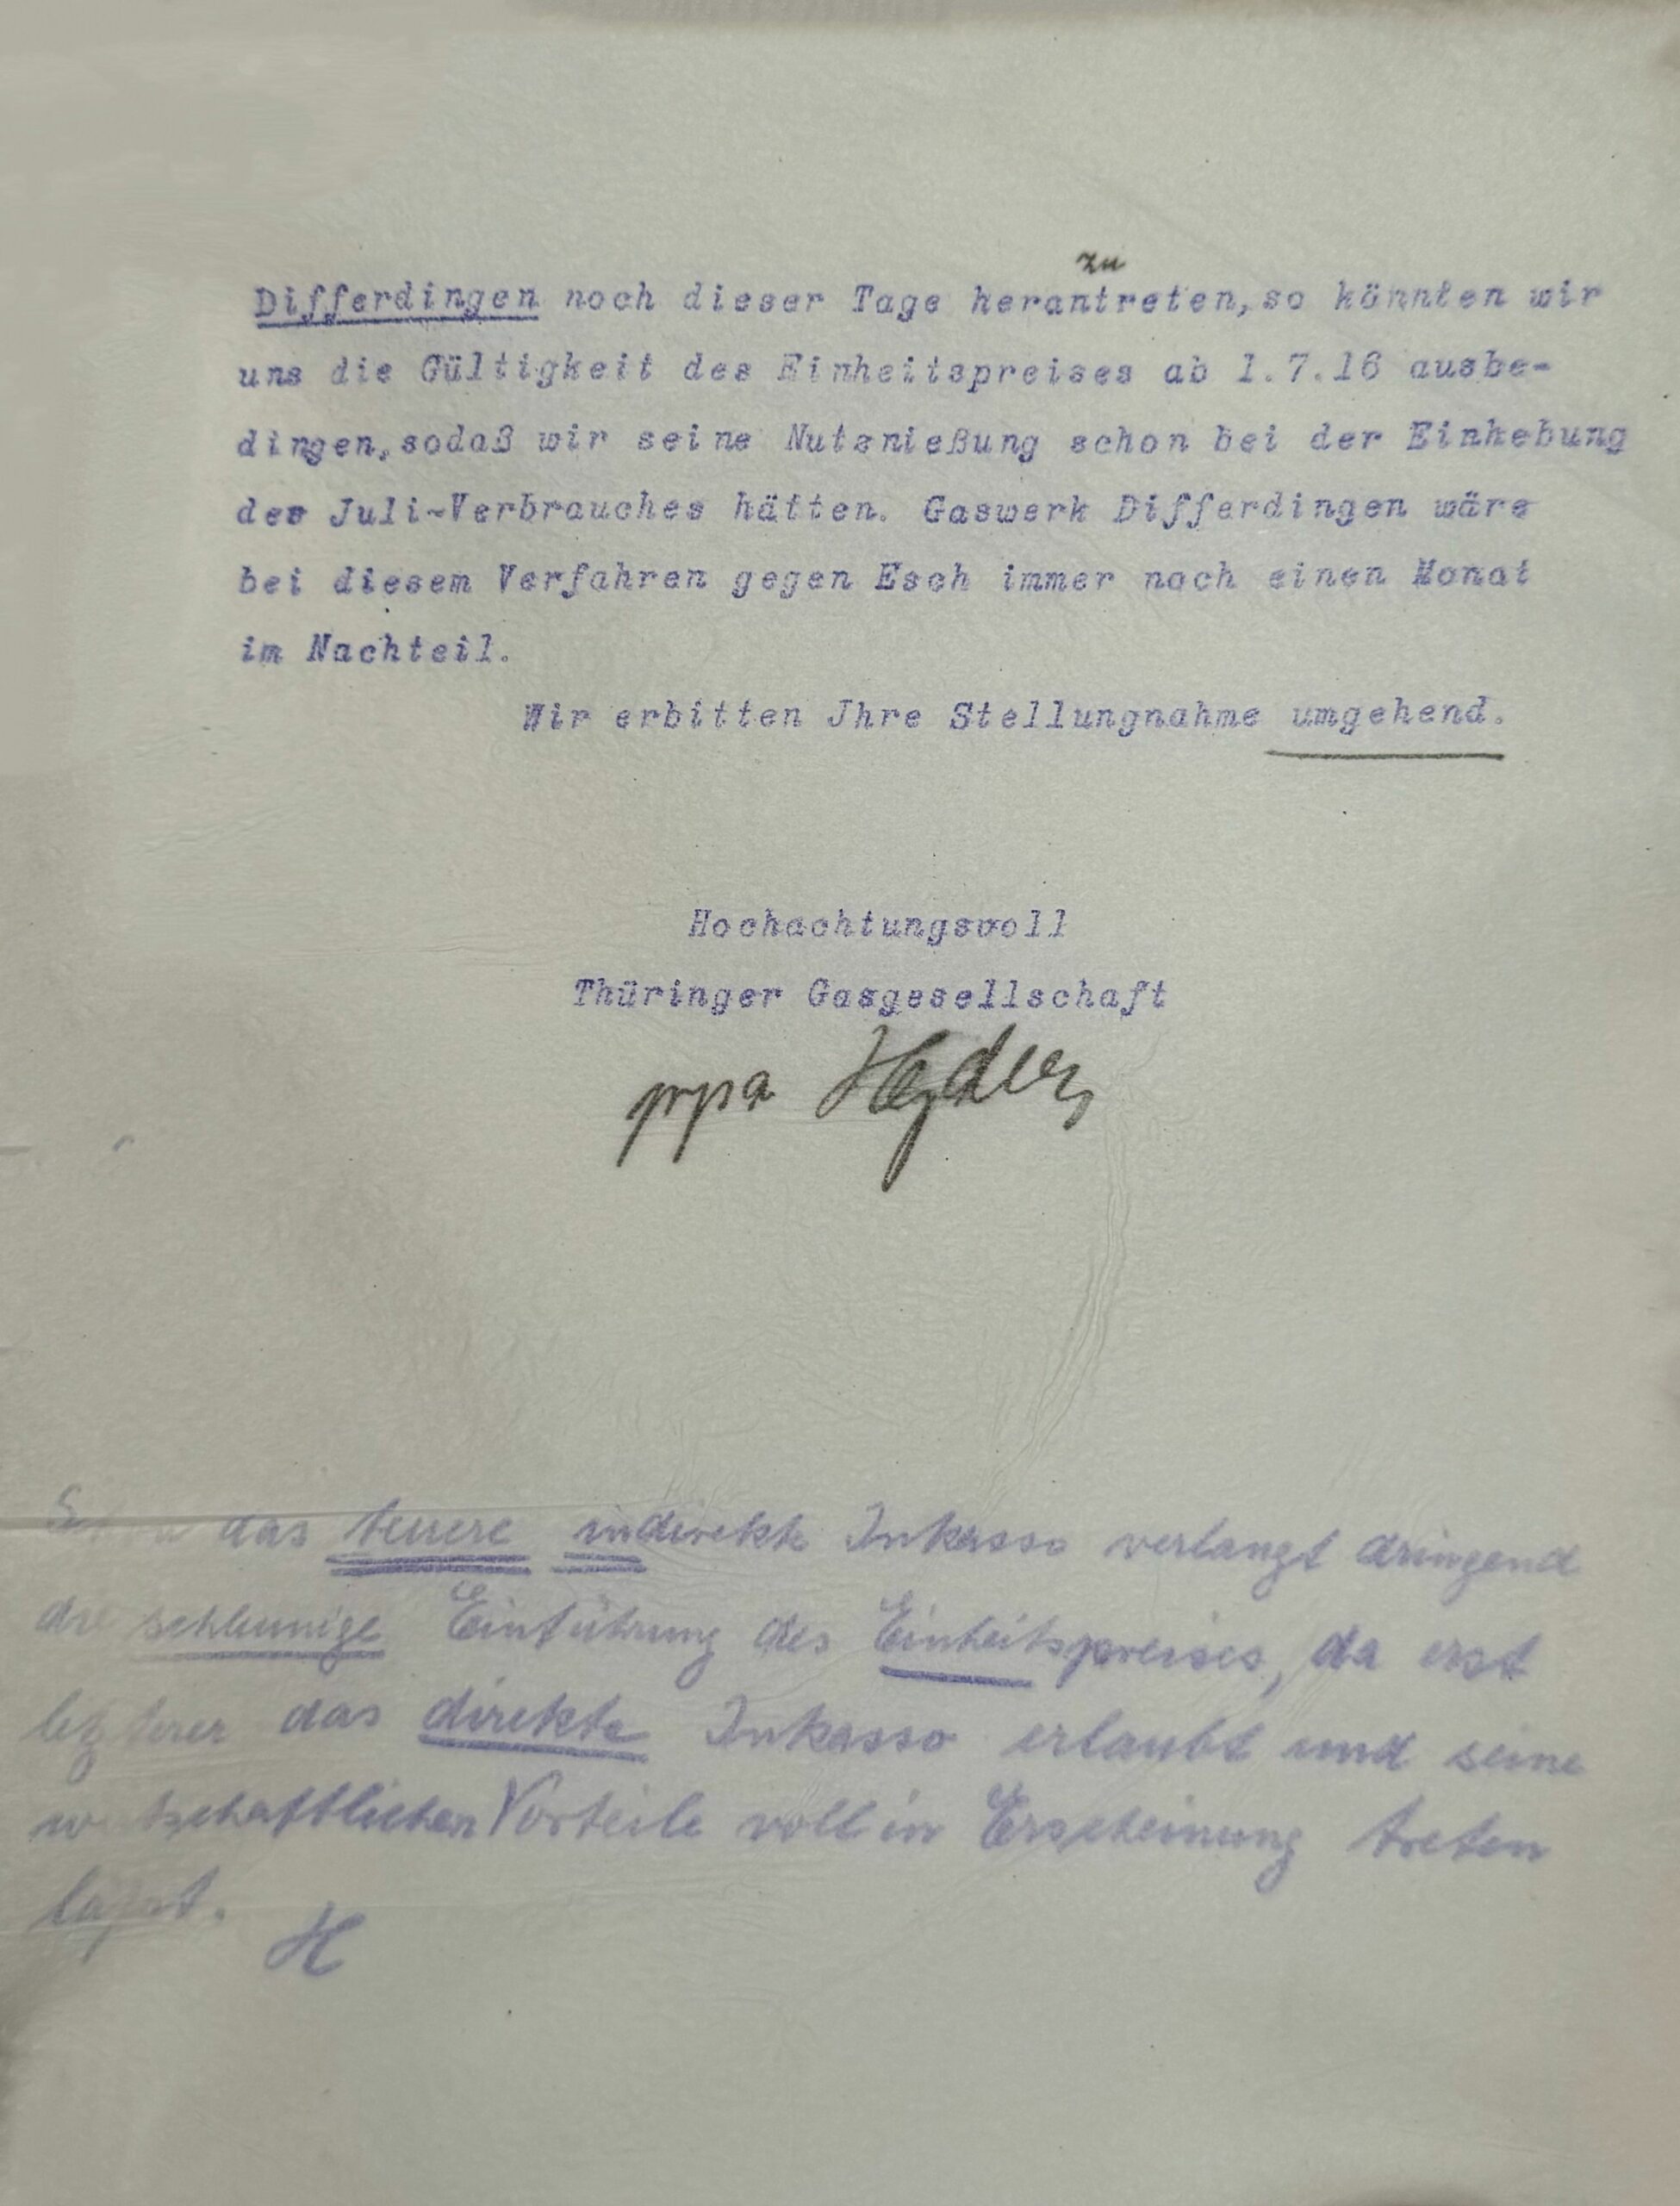 Differdingen noch dieser Tage heranzutreten, so könnten wir
uns die Gültigkeit des Einheitspreises ab 1.7.16 ausbe-
dingen, sodaß wir seine Nutznießung schon bei der Einhebung
des Juli-Verbrauches hätten. Gaswerk Differdingen wäre
bei diesem Verfahren gegen Esch immer noch einen Monat
im Nachteil.
Wir erbitten Jhre Stellungnahme umgehend.
Hochachtungsvoll
Thüringer Gasgesellschaft
ppa
das teuere indirekte Inkasso verlangt dringend
die schleunige Einführung des Einheitspreises, da erst
letzterer das direkte Inkasso erlaubt und seine
wirtschaftlichen Vorteile voll in Erscheinung treten
läßt.
H